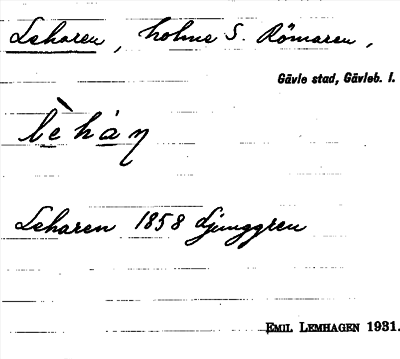 Leharen, holme S. Römaren,
Gävle stad, Gävleb. l.
lèhàn
Leharen 1858 Ljunggren
EMIL LEMHAGEN 1931.